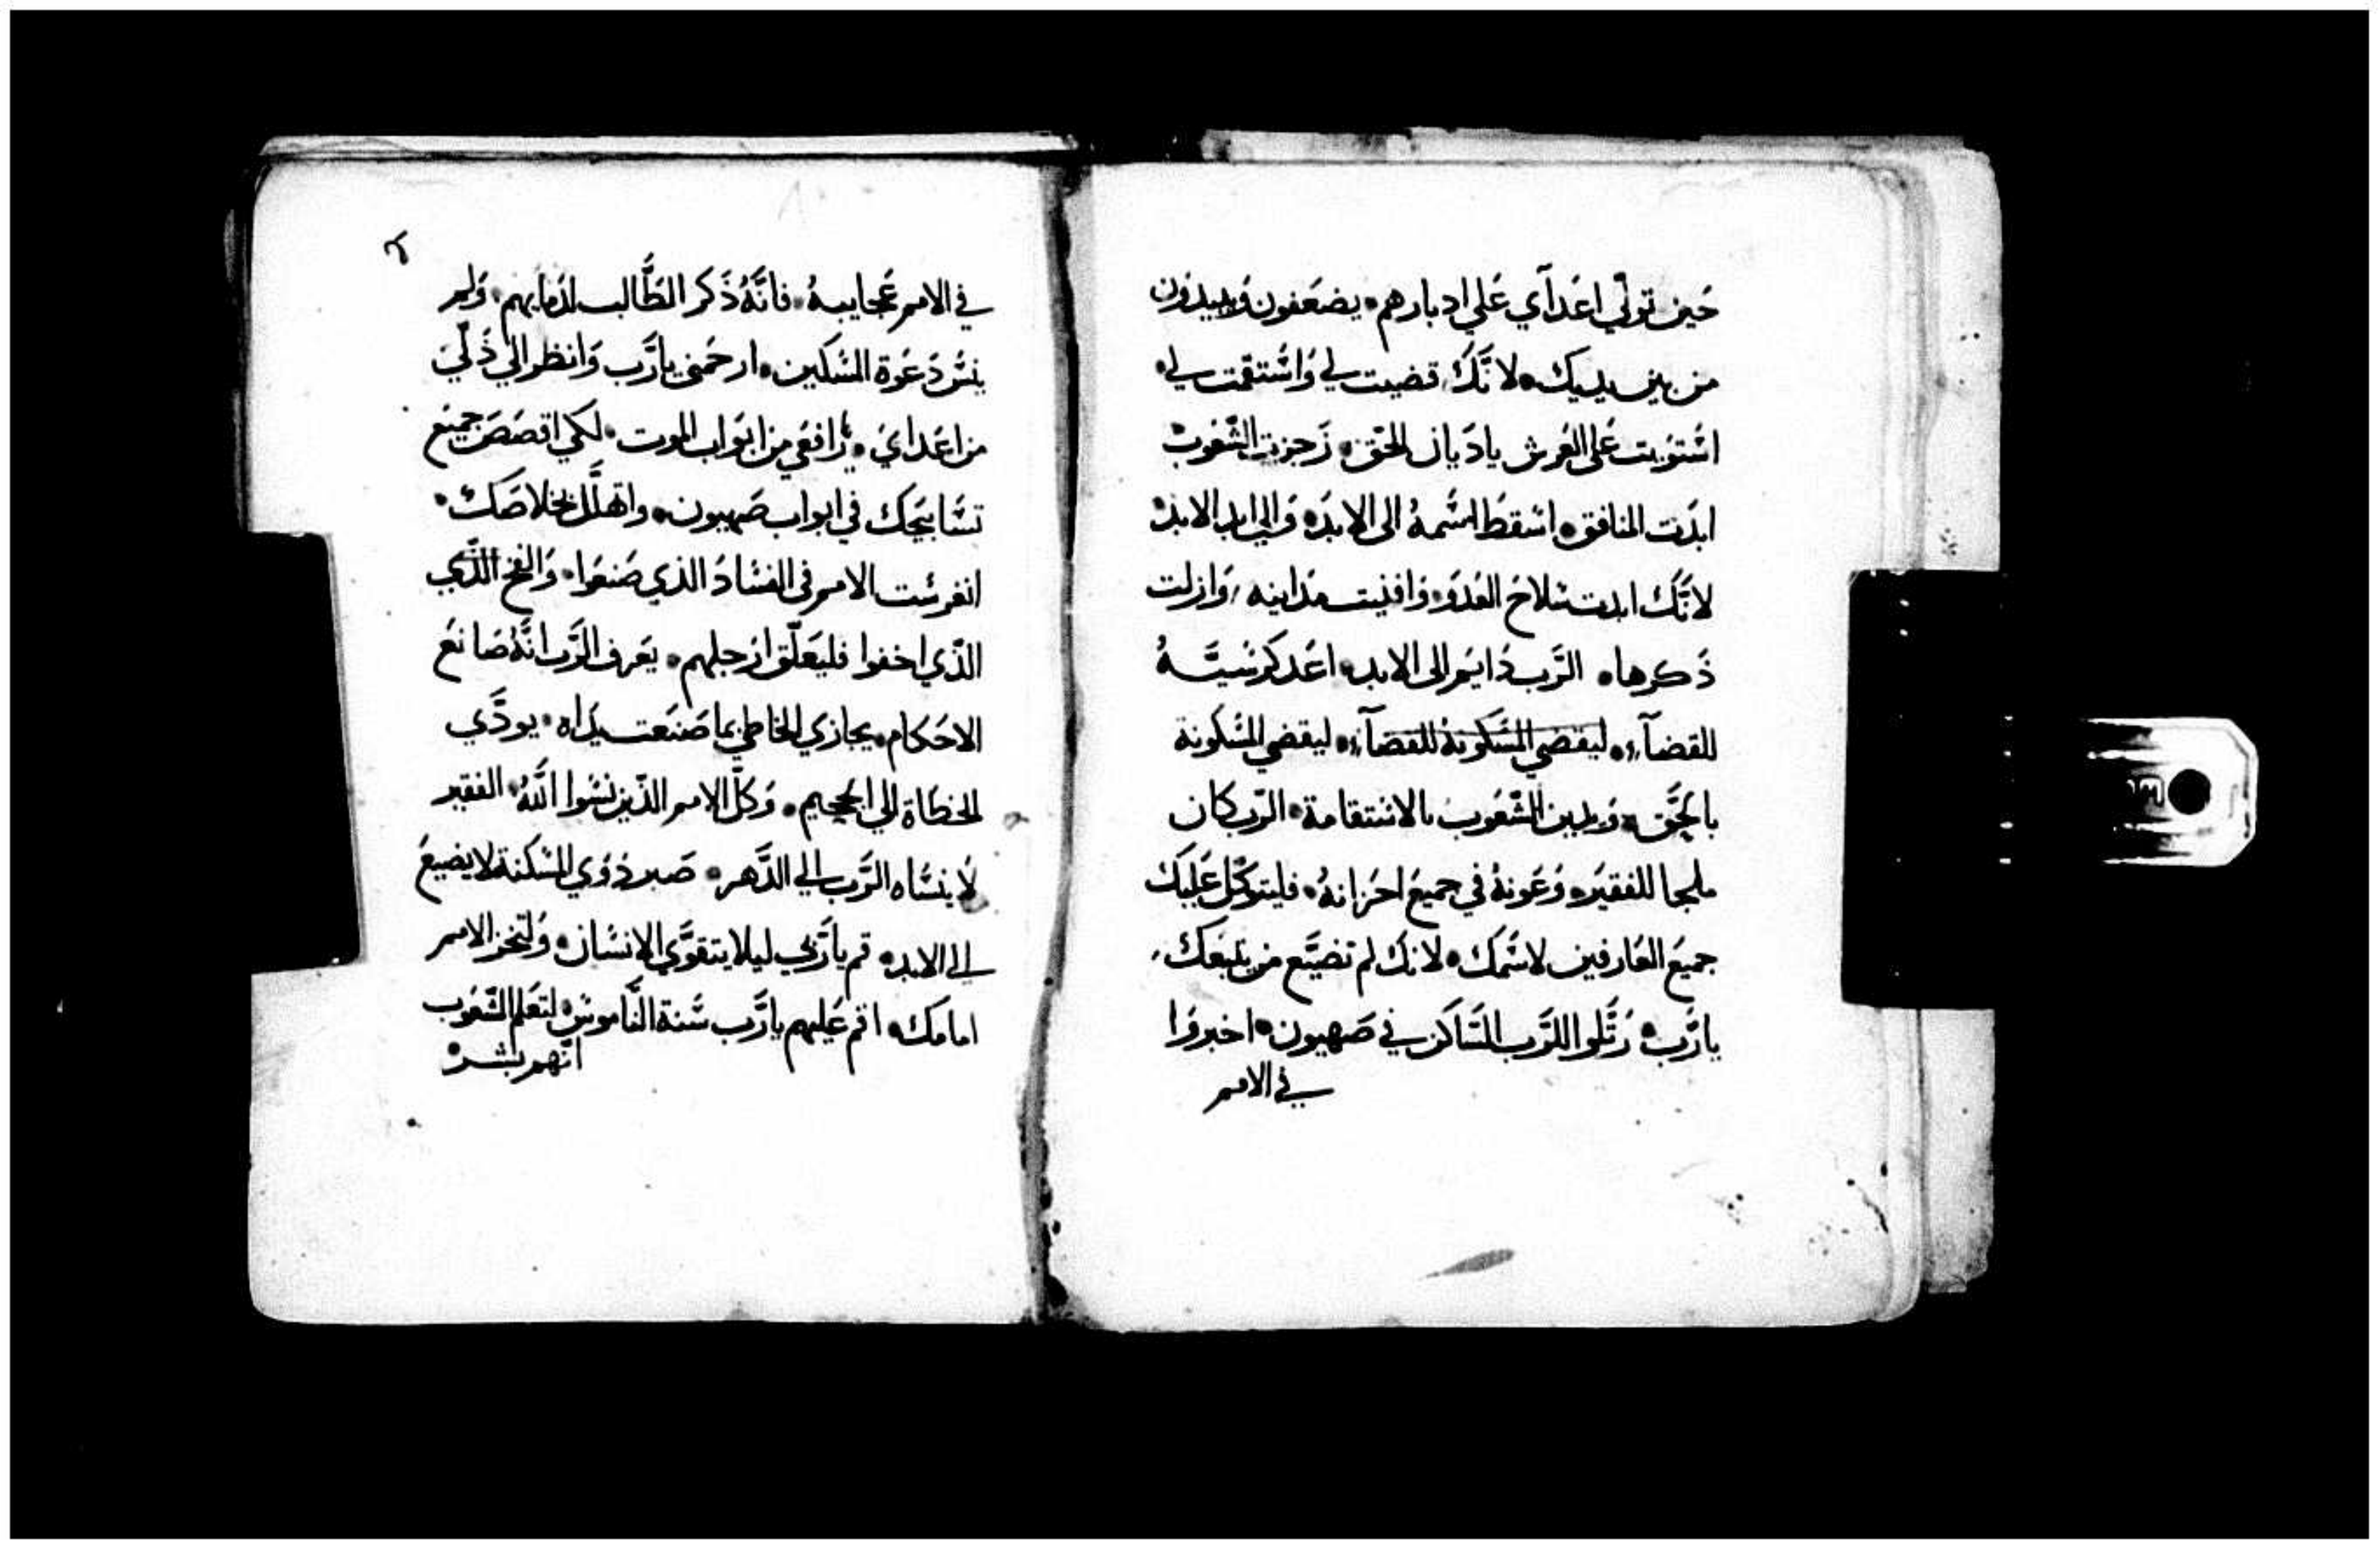 حَين تولّي اعَدآي عَلي ادبارهم • يضعَفون وَيبيدوَن
من بين يديك • لانَّكَ قضيت لي وَاسَّتقمت لي •
اسَّتوَيت عَلي العَرش يا دَيان الحَق • زَجرت الشّعَوب
ابدَت المنافق • اسَّقطت اسَّمهُ الى الابدَ • وَالي ابد الابد •
لانَّكَ ابدت سَّلاحَ العَدوَ • وَافنيت مدَاينه ، وَازلت
ذَكرها • الرَّب دَايم الى الابد • اعَد كرسَيَّهُ
للقضآء • ليقضي المسَّكونة للقضآء • ليقضي المسَّكونة
بالحَّق • وَيدين الشّعَوب بالاسَّتقامة • الرّب كان
ملجا للفقيرَ • وَعَونهُ في جميعَ احَزانهُ • فليتوكّل عَليك
جميعَ العَارفين لاسَّمك • لانك لم تضيَّع من يتبعَك ،
يا رَّب • رَتَّلوا للرَّب السَّاكن في صَهيون • اخبروَا
في الامم
في الامم عَجايبهُ • فانَّهُ ذَكر الطَّالب لدَمايهم • وَلم
ينسَّ دَعَوة المسَّكين • ارحَمني يا رَّب وَانظر الي ذَلّيَ
من اعَدايَ • يا رَافعَي من ابوَاب الموت • لكي اقصَصَ جميعَ
تسَّابيحَك في ابواب صَهيون • واتهلَّل بخلاصَك •
انغرسَت الامم في الفسَّادَ الذي صَنعَوا • وَالفخ الذّي
الذّي اخفوا فليعَلّق ارَجلهم • يعَرف الرَّب انَّهُ صَانعَ
الاحَكام • يجازي الخاطي بما صَنعَت يدَاه • يودَّي
الخطَاة الي الجحَيم • وَكلّ الامم الذّين نسَّوا اللَّهُ • الفقير
لا ينسَّاه الرَّب الي الدَّهر • صَبر ذوَي المسَّكنة لا يضيعَ
الي الابد • قم يا رَّبي ليلا يتقوَّي الانسَّان • وَلتخز الامم
امامك • اقم عَليهم يا رَّب سَّنة النَّاموسَ • لتعَلم الشّعَوب
انّهم بشر •